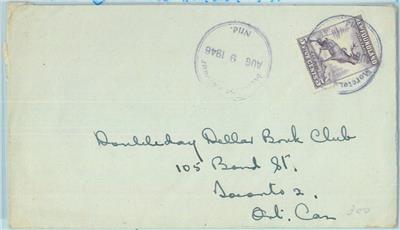 AUG 9 1946
Nfld.
NEWFOUNDLAND
Doubleday Dollar Book Club
105 Bond St.
Toronto 2.
Ont. Can
300